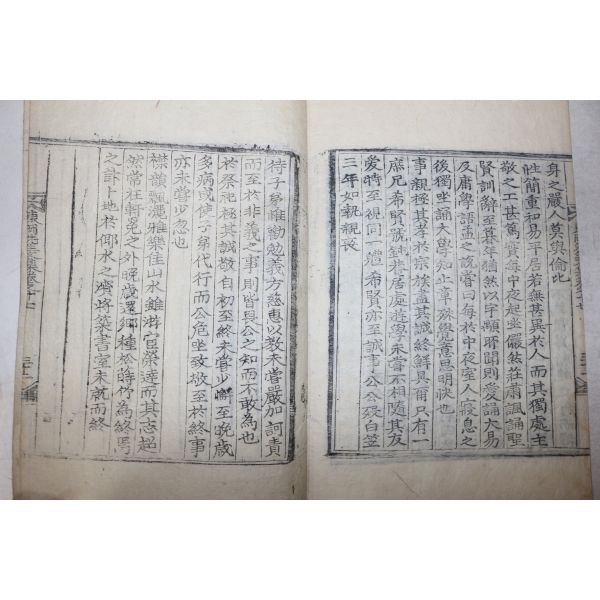 身之嚴人莫與倫比
性簡重和易平居若無甚異於人而其獨處主
敬之工甚篤實每中夜起坐儼然莊肅諷誦聖
賢訓辭至暮年猶然以字顯聆聞則爰誦大易
及庸學語孟之說嘗曰每於中夜室人寢息之
後獨坐誦大學知止章殊覺意思明快也
事親極其孝於宗族盡其誠終鮮兄甭只有一
庶兄希賢號鈍耆居處遊學未嘗不相隨其友
愛特至視同一體希賢亦至誠事公公歿白笠
三年如親親喪
待子弟雖勖勉義方慈惠以教未嘗嚴加訶責
而至於非義之事則皆畏公之知而不敢為也
於祭祀極其誠敬自初至終未嘗少懈至晚歲
多病或使子弟代行而公危坐致敬至於終事
亦未嘗少忽也
襟韻飄灑雅樂佳山水雖游宦榮逵而其志超
然常在軒冕之外晚歲還鄉種松蒔竹為終焉
之計卜地於仰水之濱將築書室未就而終